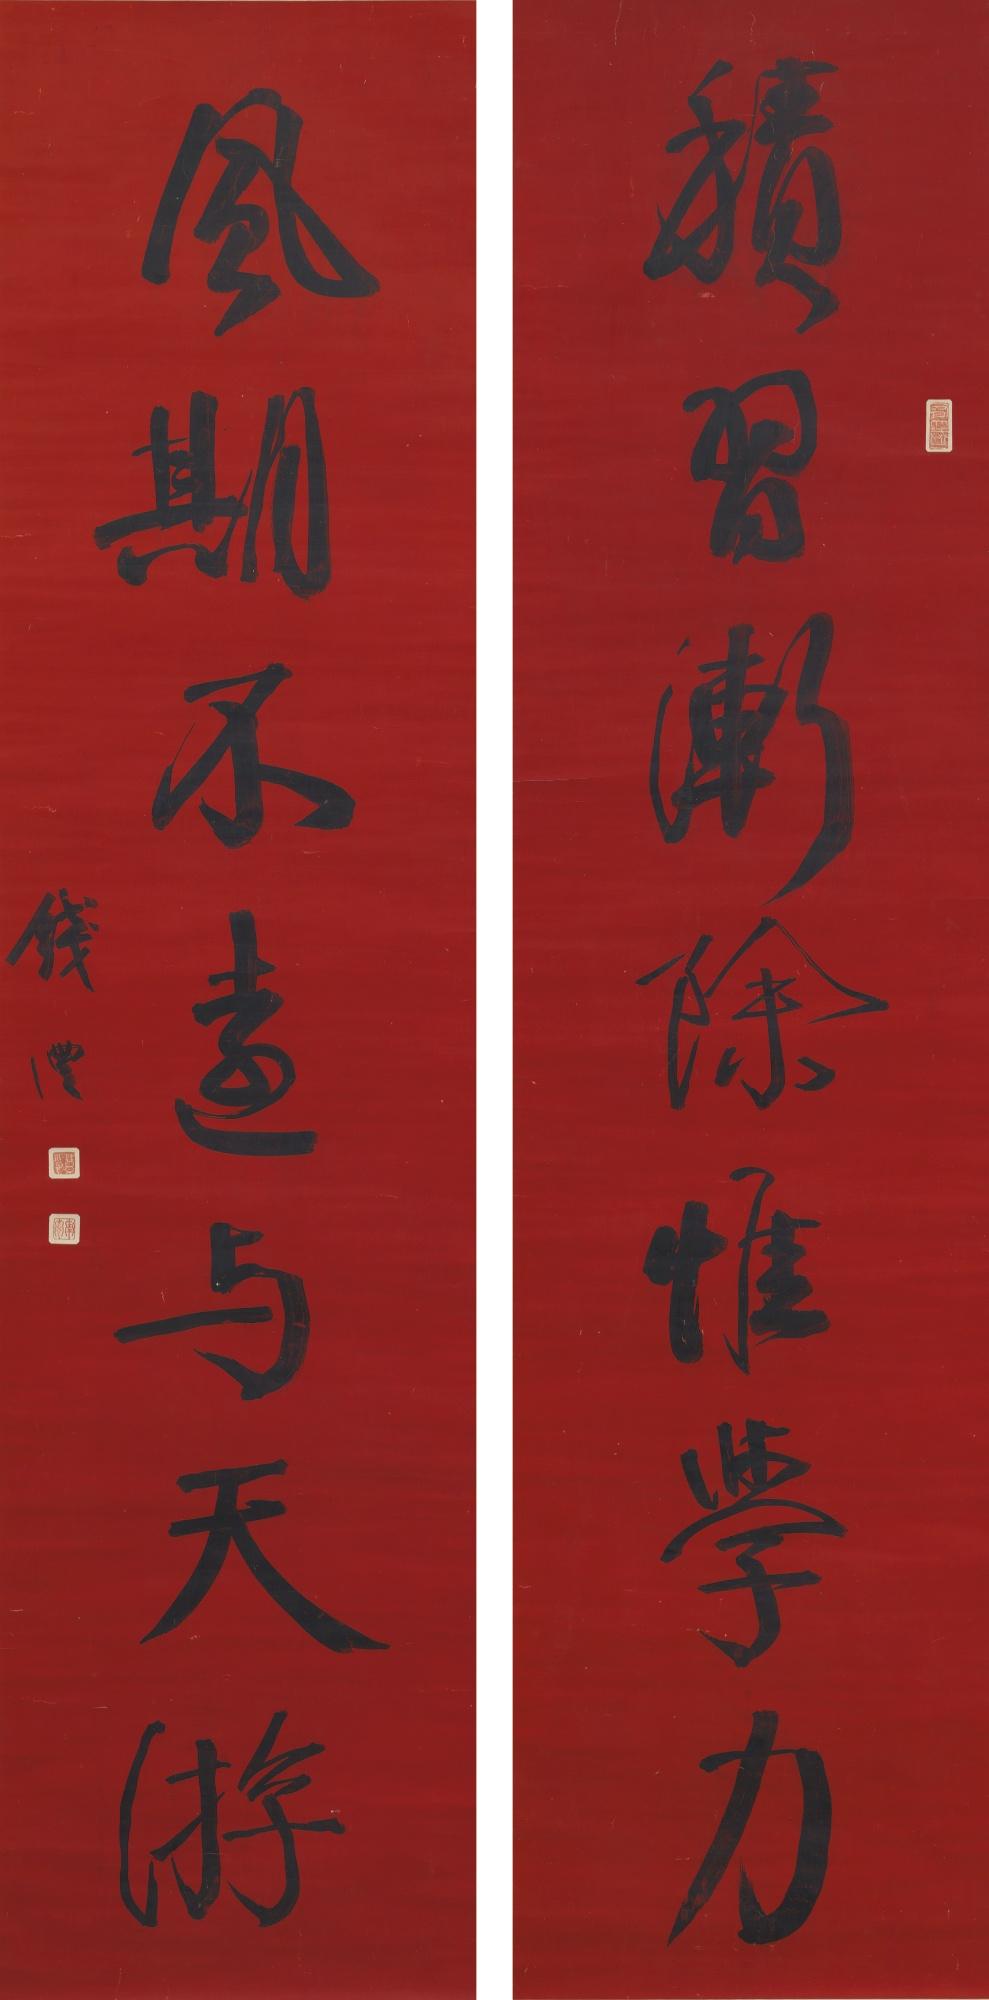 積習漸除惟學力
風期不遠与天游
錢灃